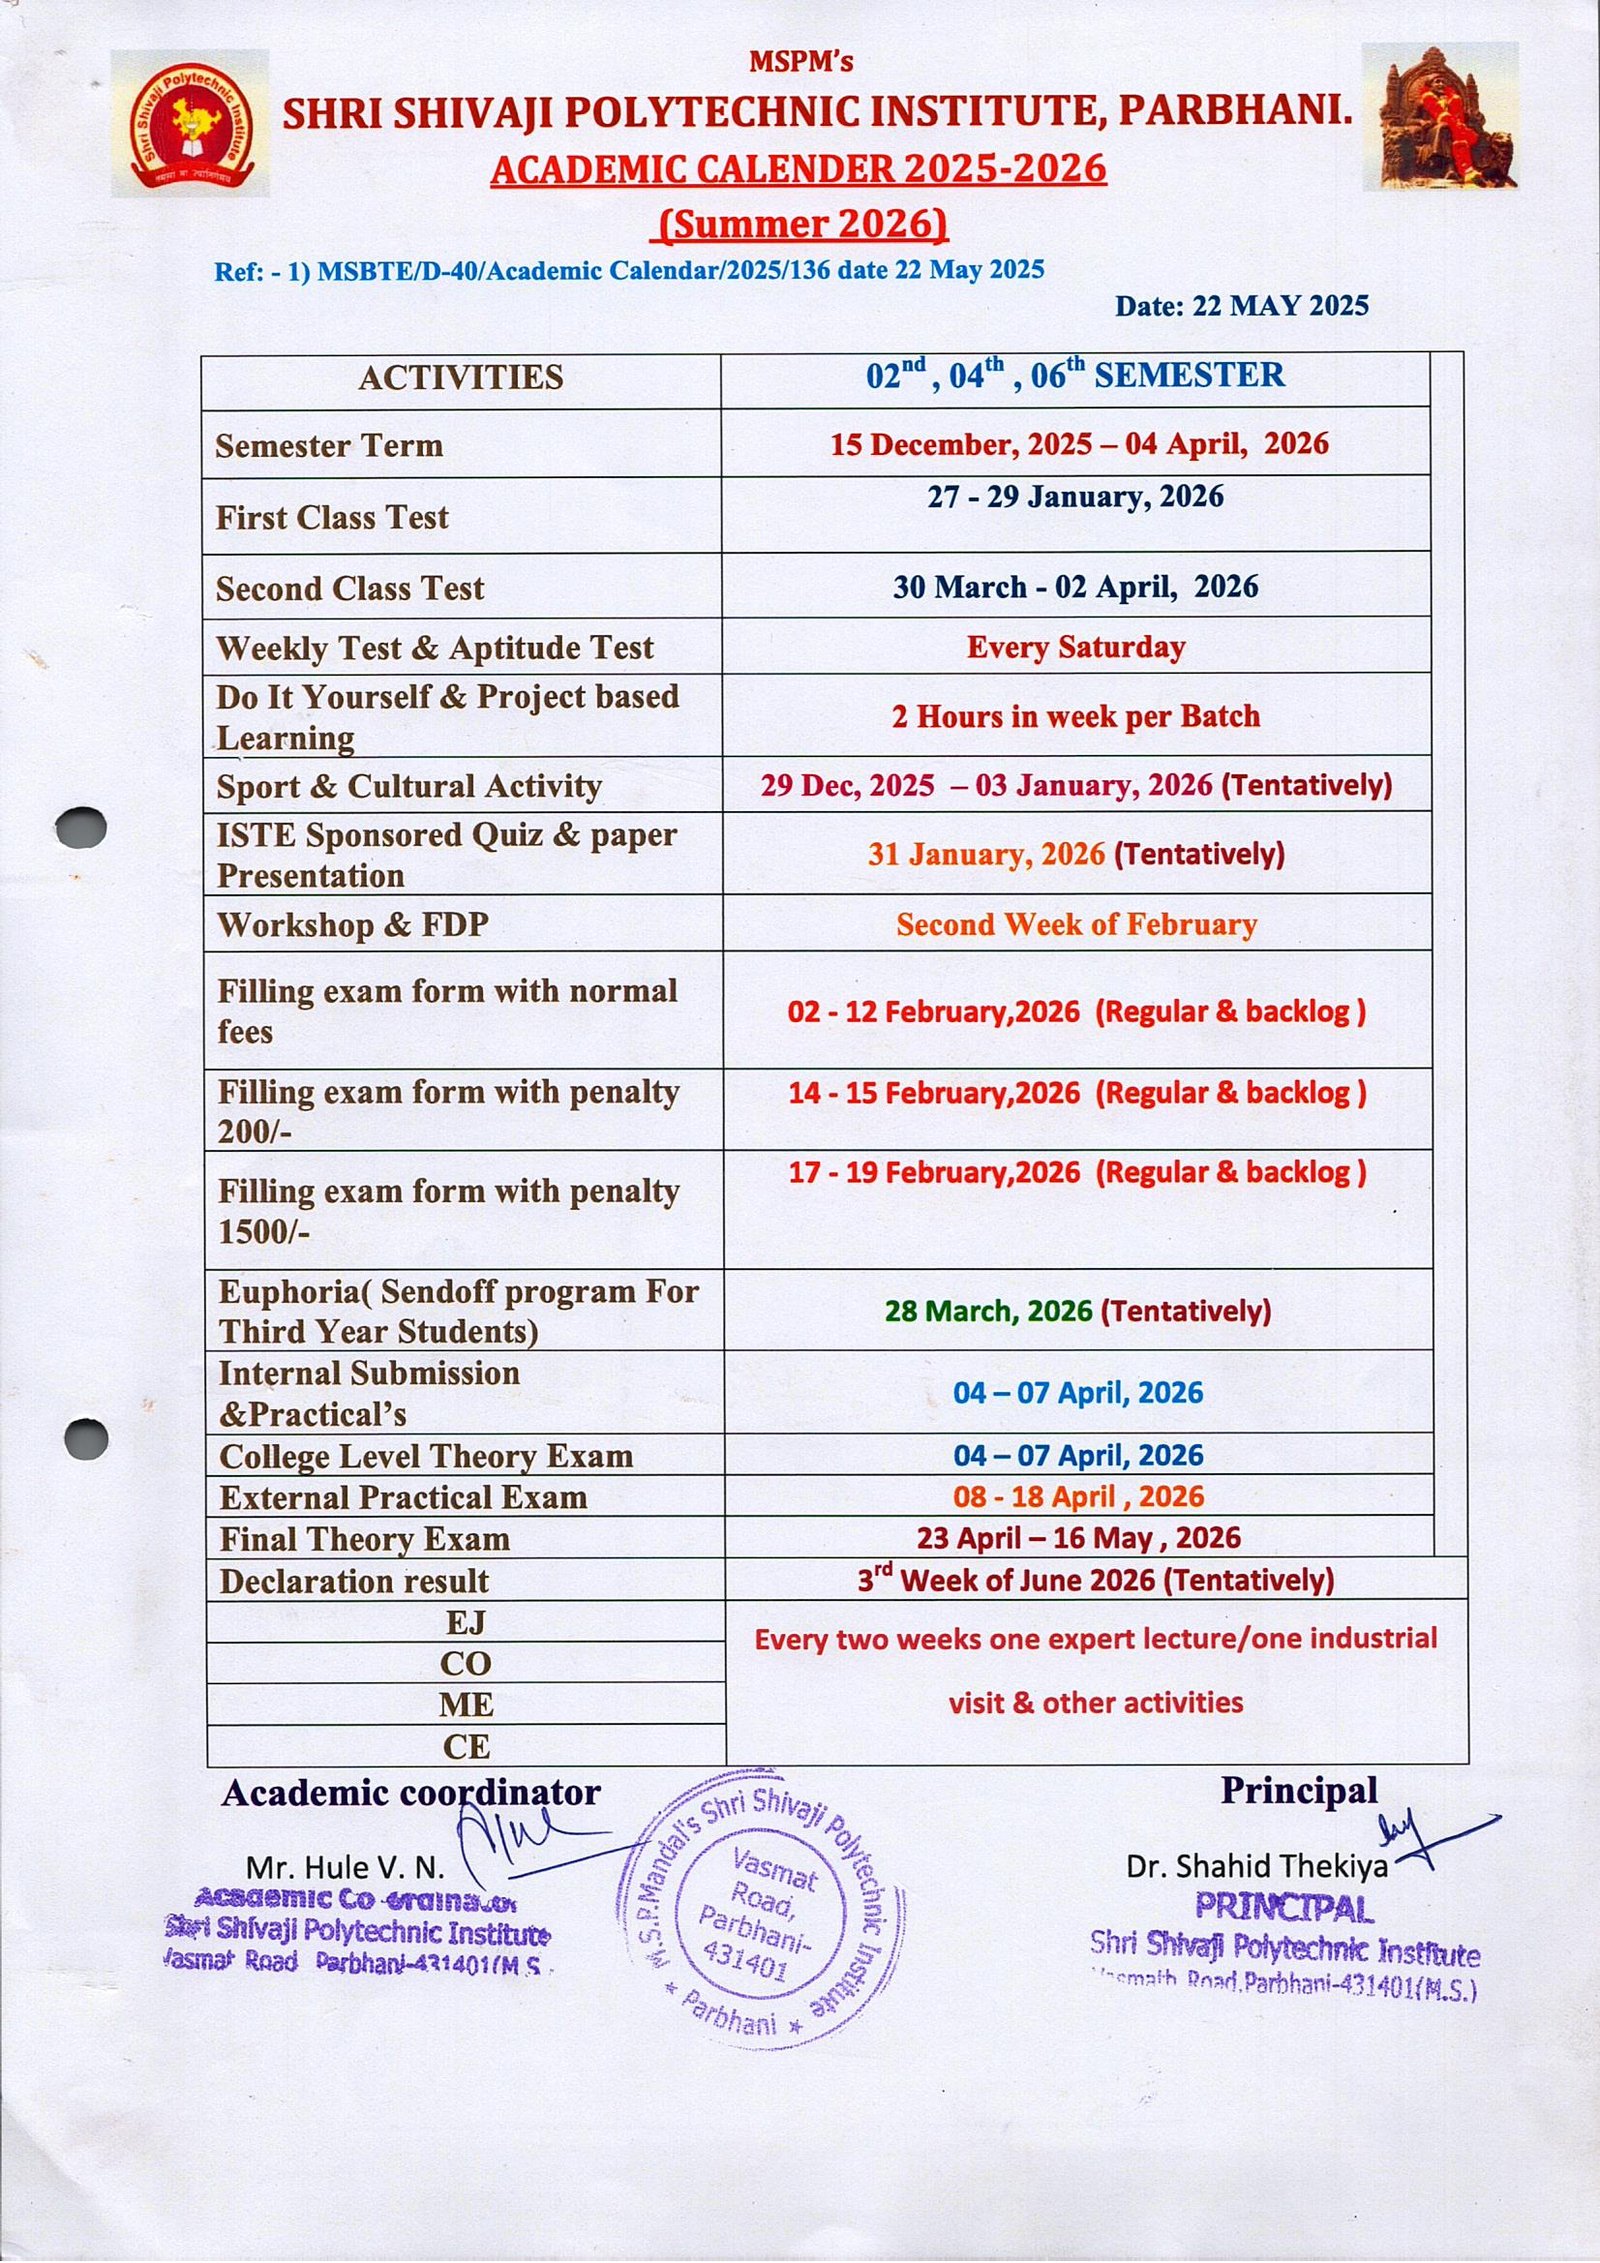 MSPM's
SHRI SHIVAJI POLYTECHNIC INSTITUTE, PARBHANI.
ACADEMIC CALENDER 2025-2026
(Summer 2026)
Ref: - 1) MSBTE/D-40/Academic Calendar/2025/136 date 22 May 2025
Date: 22 MAY 2025
Shri Shivaji Polytechnic Institute
ACTIVITIES
02nd , 04th , 06th SEMESTER
Semester Term
15 December, 2025 – 04 April, 2026
First Class Test
27 - 29 January, 2026
Second Class Test
30 March - 02 April, 2026
Weekly Test & Aptitude Test
Every Saturday
Do It Yourself & Project based
Learning
2 Hours in week per Batch
Sport & Cultural Activity
29 Dec, 2025 – 03 January, 2026 (Tentatively)
ISTE Sponsored Quiz & paper
Presentation
31 January, 2026 (Tentatively)
Workshop & FDP
Second Week of February
Filling exam form with normal
fees
02 - 12 February,2026 (Regular & backlog )
Filling exam form with penalty
200/-
14 - 15 February,2026 (Regular & backlog )
Filling exam form with penalty
1500/-
17 - 19 February,2026 (Regular & backlog )
Euphoria( Sendoff program For
Third Year Students)
28 March, 2026 (Tentatively)
Internal Submission
&Practical's
04 – 07 April, 2026
College Level Theory Exam
04 – 07 April, 2026
External Practical Exam
08 - 18 April , 2026
Final Theory Exam
23 April – 16 May , 2026
Declaration result
3rd Week of June 2026 (Tentatively)
EJ
CO
ME
CE
Every two weeks one expert lecture/one industrial
visit & other activities
Academic coordinator
Mr. Hule V. N.
Academic Co-ordinator
Shri Shivaji Polytechnic Institute
Vasmat Road Parbhani-431401(M.S.
M.S.P.Mandal's Shri Shivaji Polytechnic Institute
★ Parbhani ★
Vasmat
Road,
Parbhani-
431401
Principal
Dr. Shahid Thekiya
PRINCIPAL
Shri Shivaji Polytechnic Institute
Vasmath Road,Parbhani-431401(M.S.)